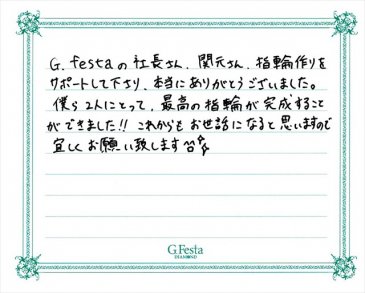 G.festaの社長さん、関元さん、指輪作りを
サポートして下さり、本当にありがとうございました。
僕ら2人にとって、最高の指輪が完成すること
ができました!! これからもお世話になると思いますので
宜しくお願い致します
G.Festa
DIAMOND